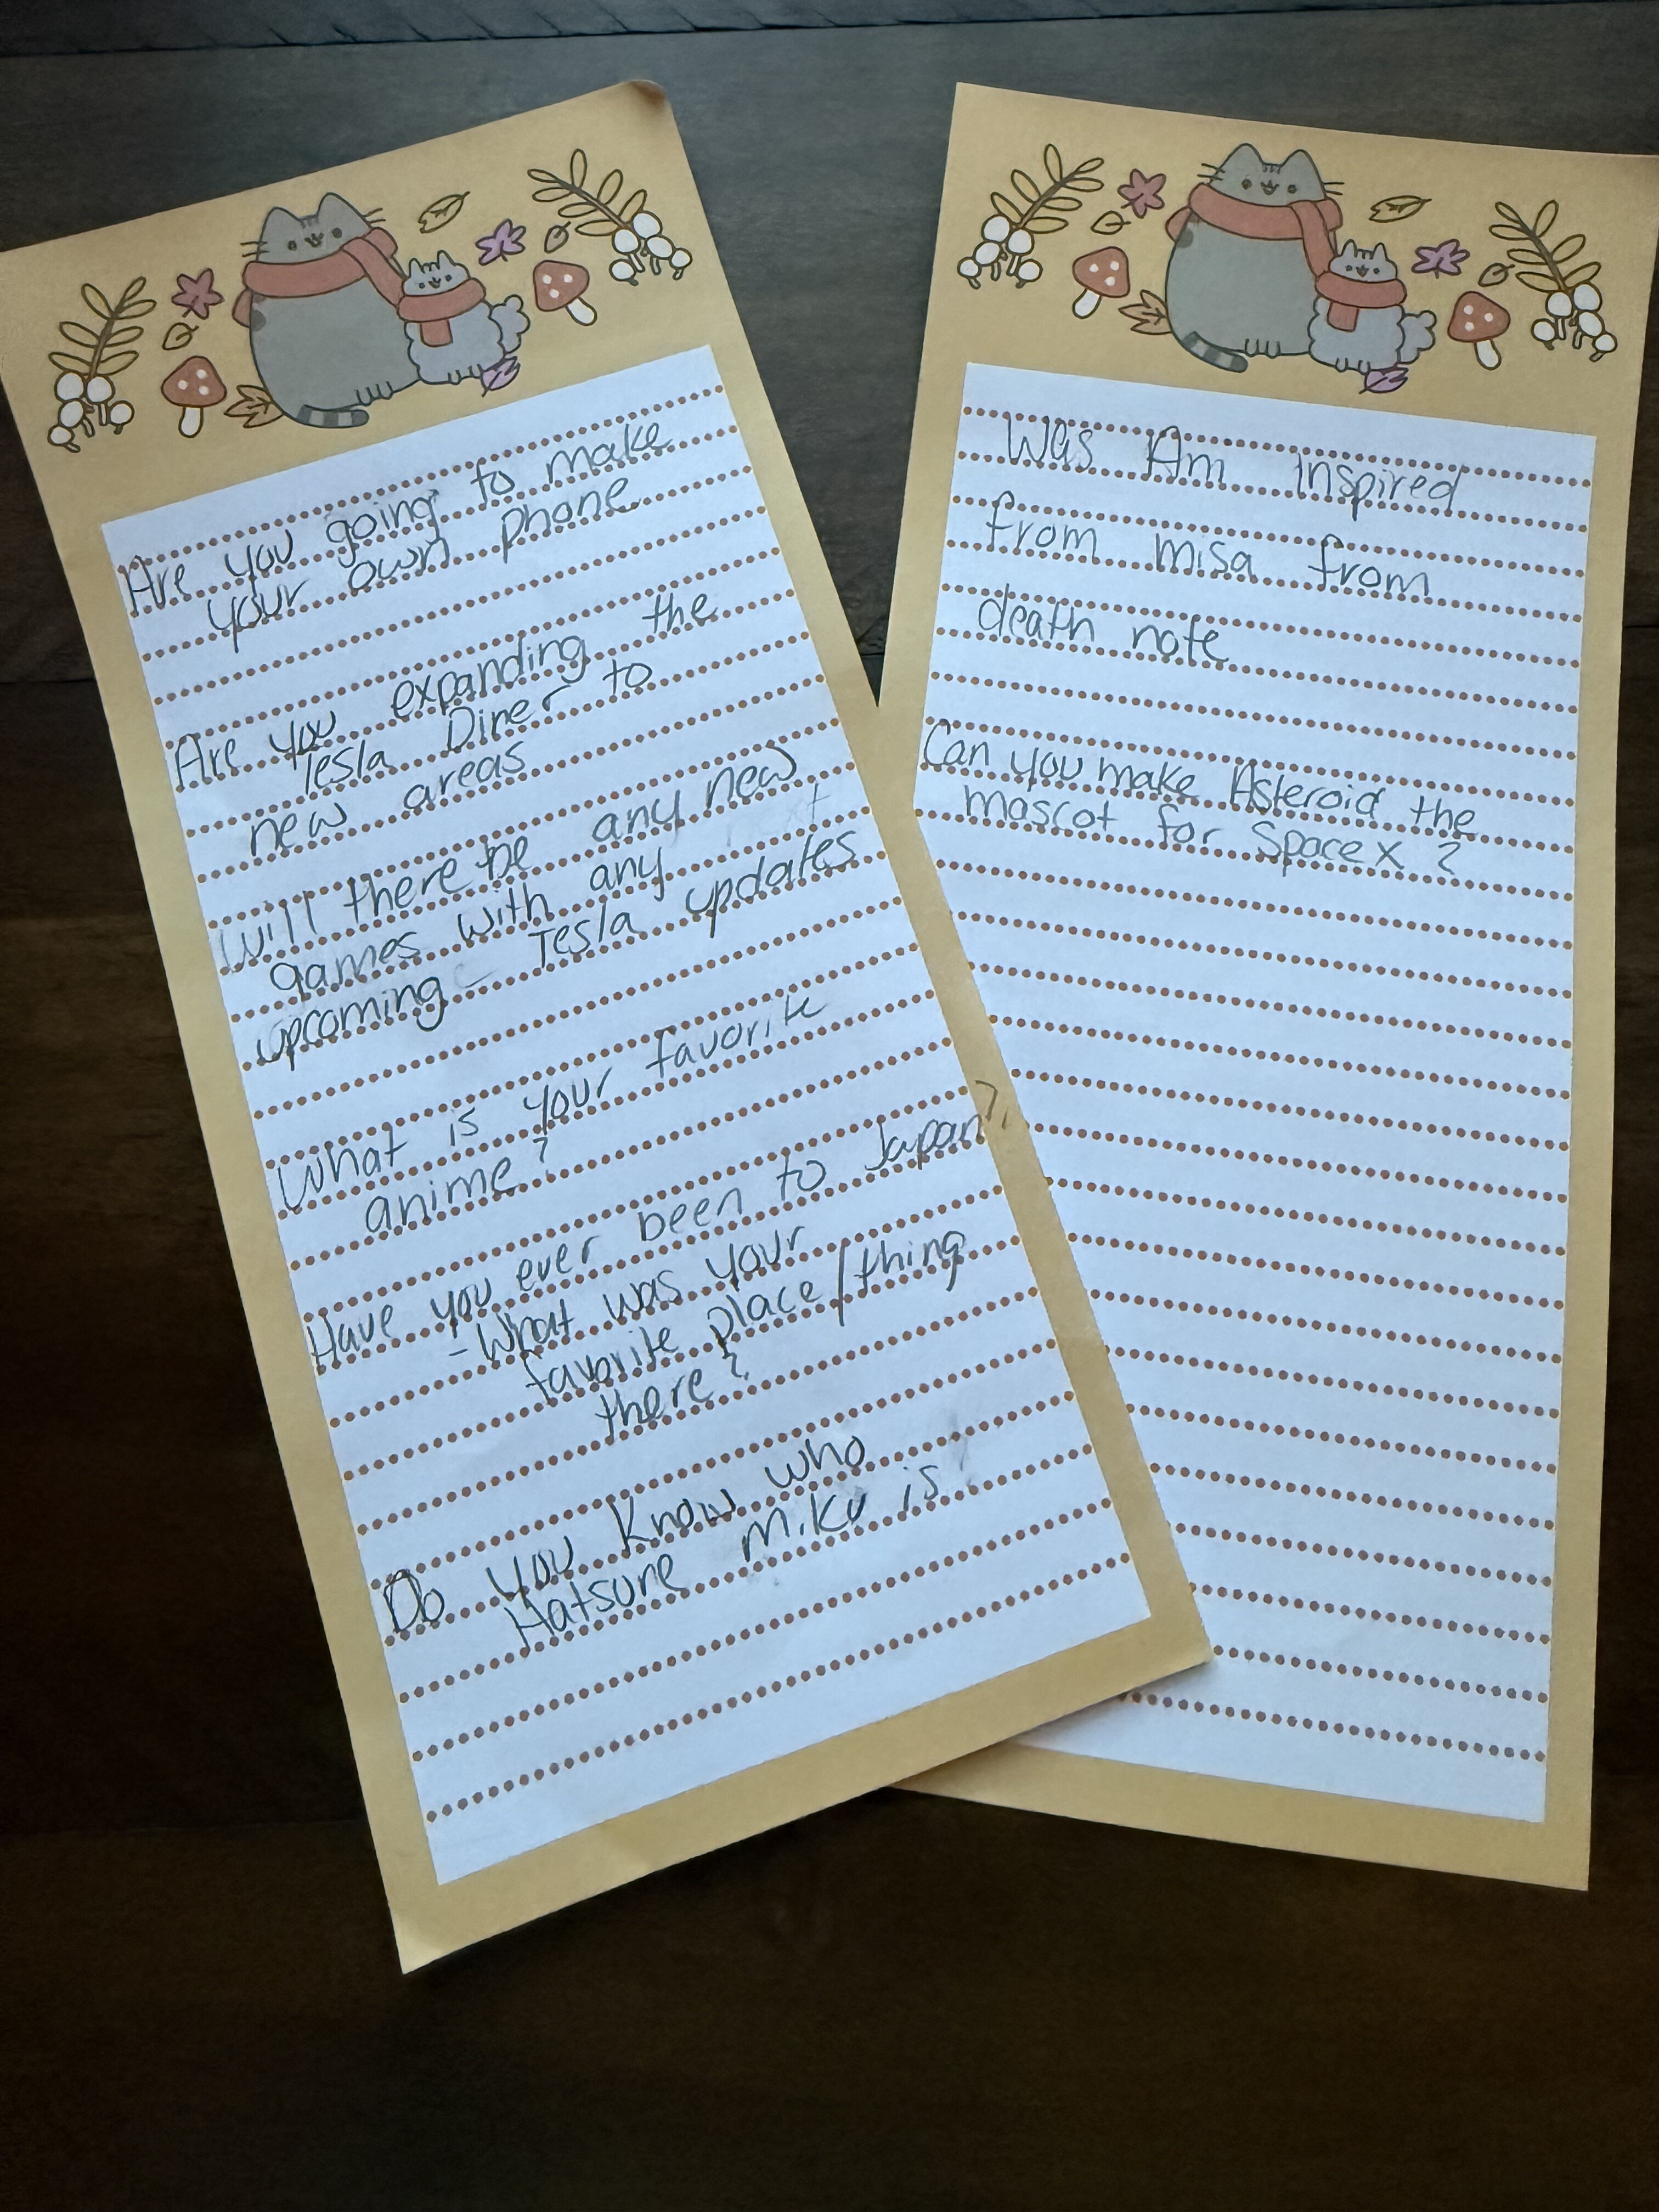 Are you going to make
your own phone
Are you expanding the
Tesla Diner to
new areas
Will there be any new
games with any
upcoming Tesla updates
What is your favorite
anime?
Have you ever been to Japan?
-What was your
favorite place/thing
there?
Do you know who
Hatsune Miku is
Was Am Inspired
from misa from
death note
Can you make Asteroid the
mascot for Space X ?